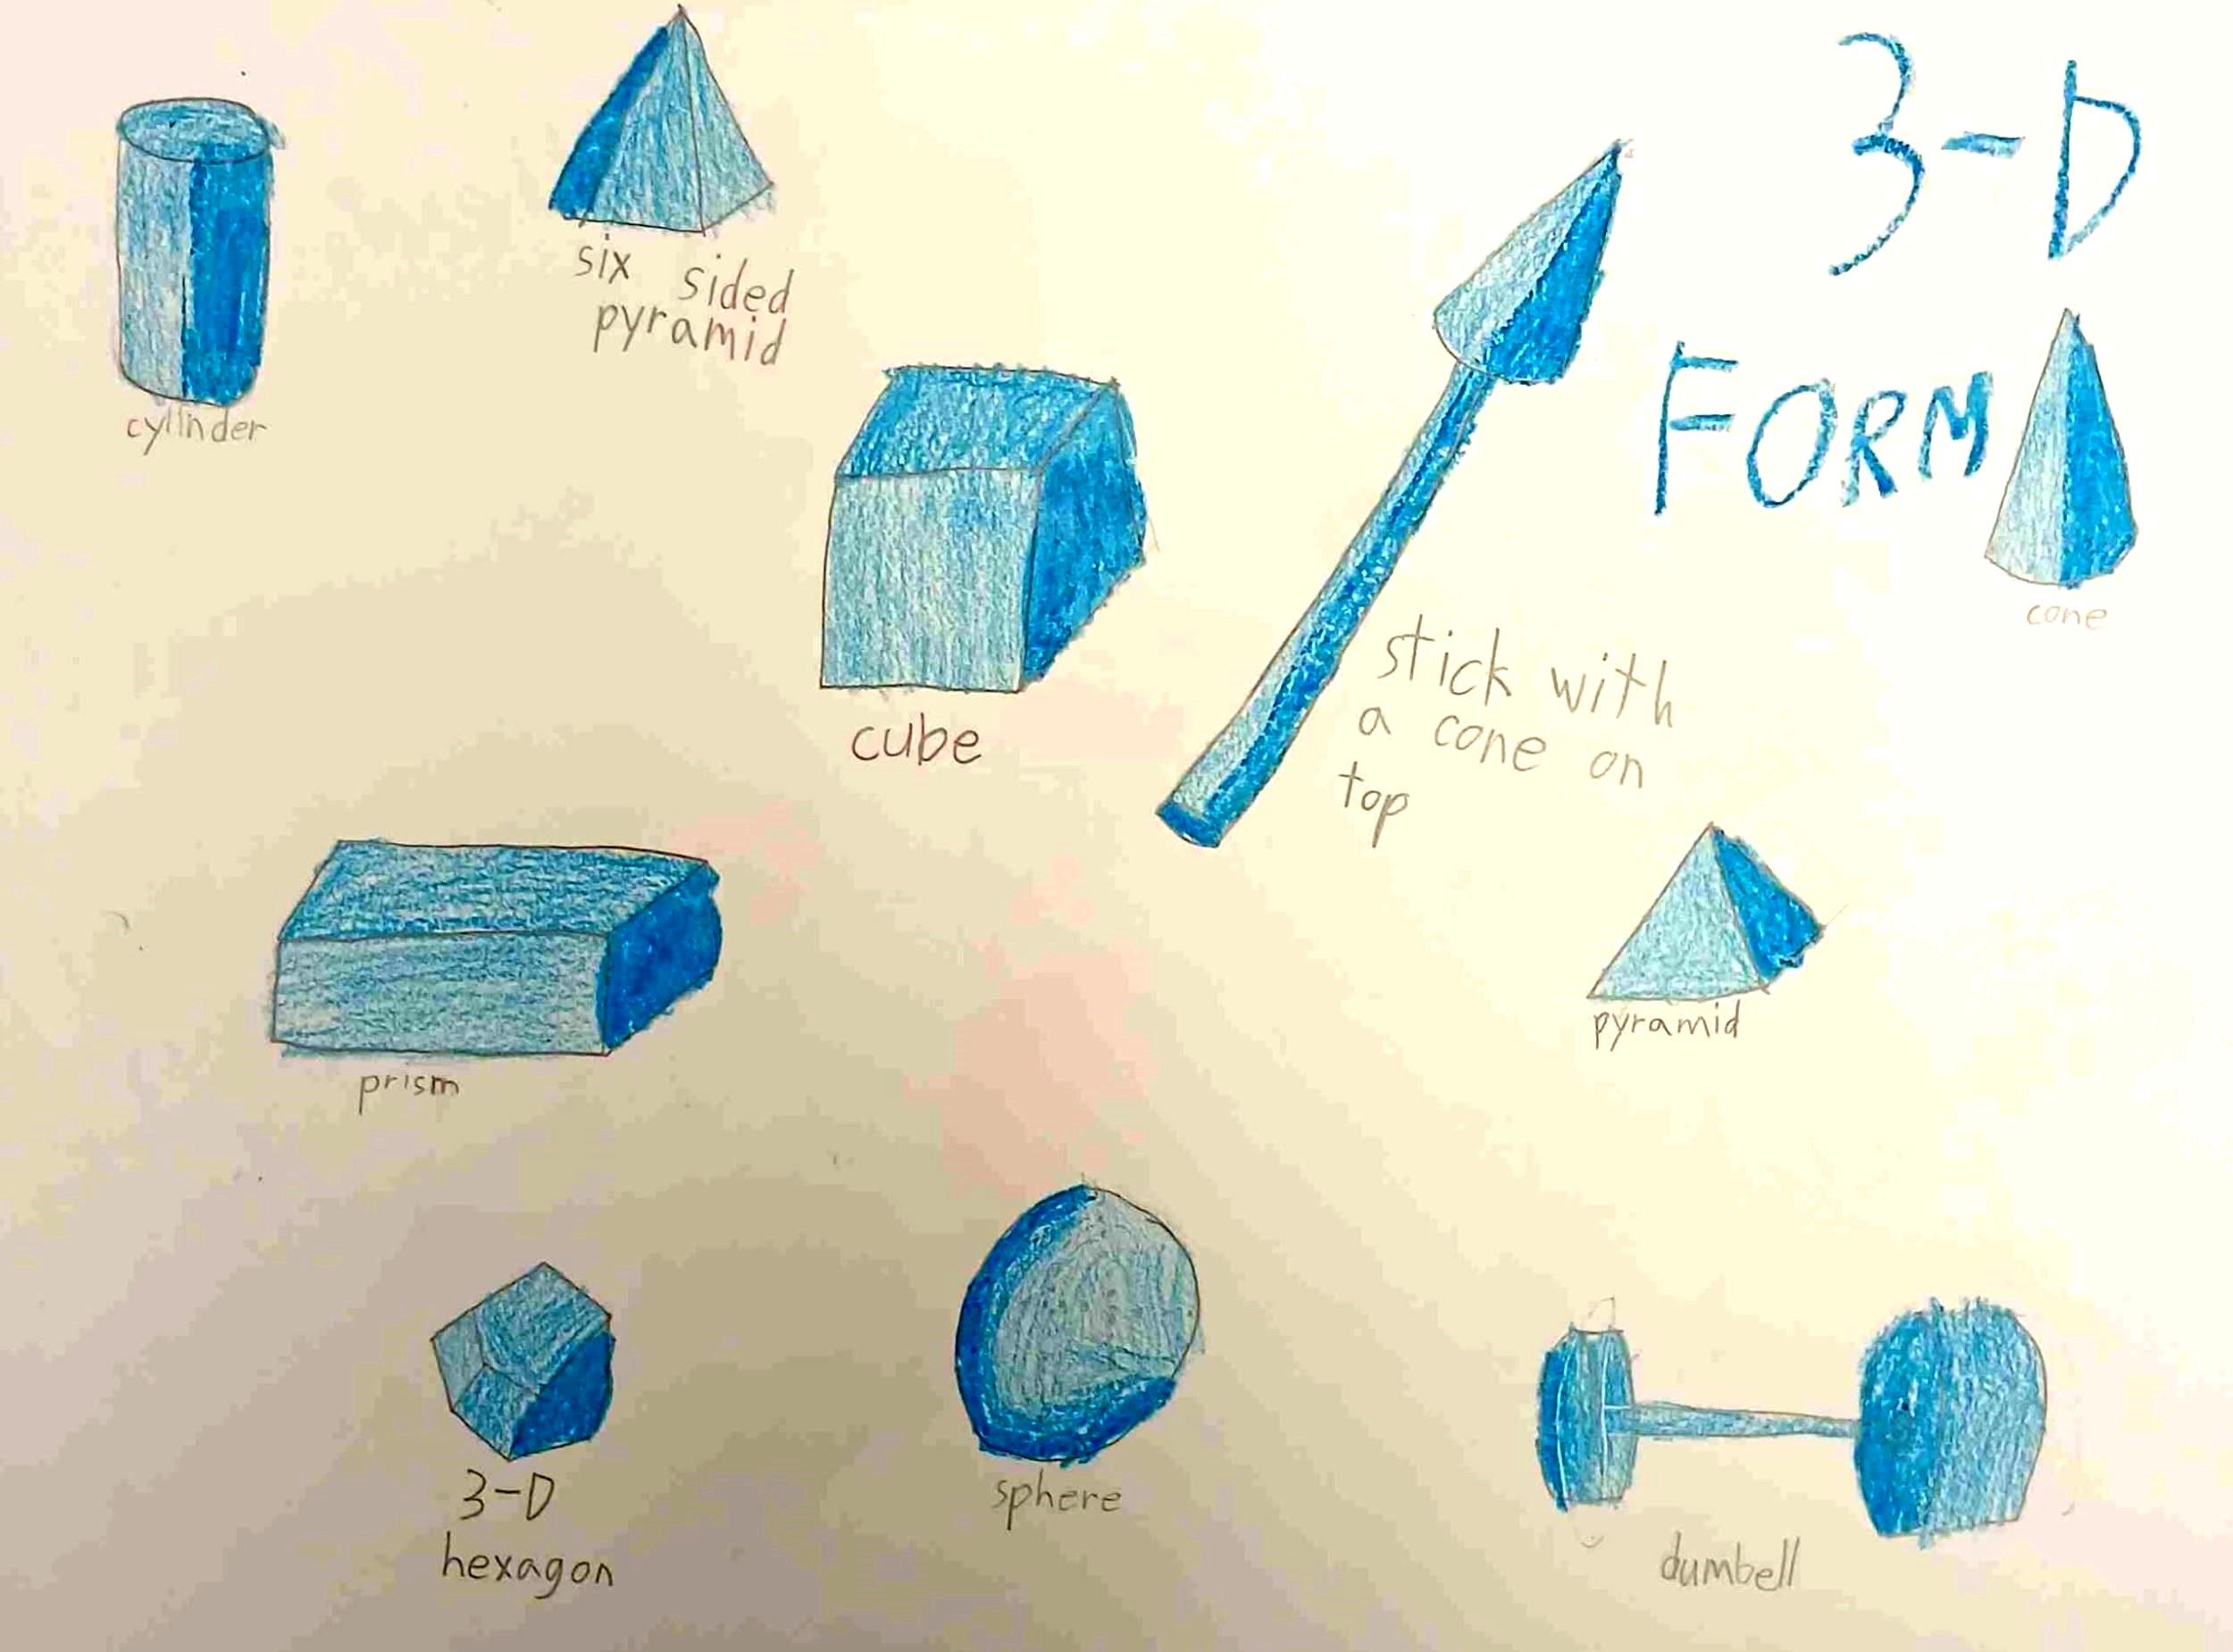 3-D
FORM
cylinder
six sided
pyramid
cube
stick with
a cone on
top
cone
prism
pyramid
3-D
hexagon
sphere
dumbell